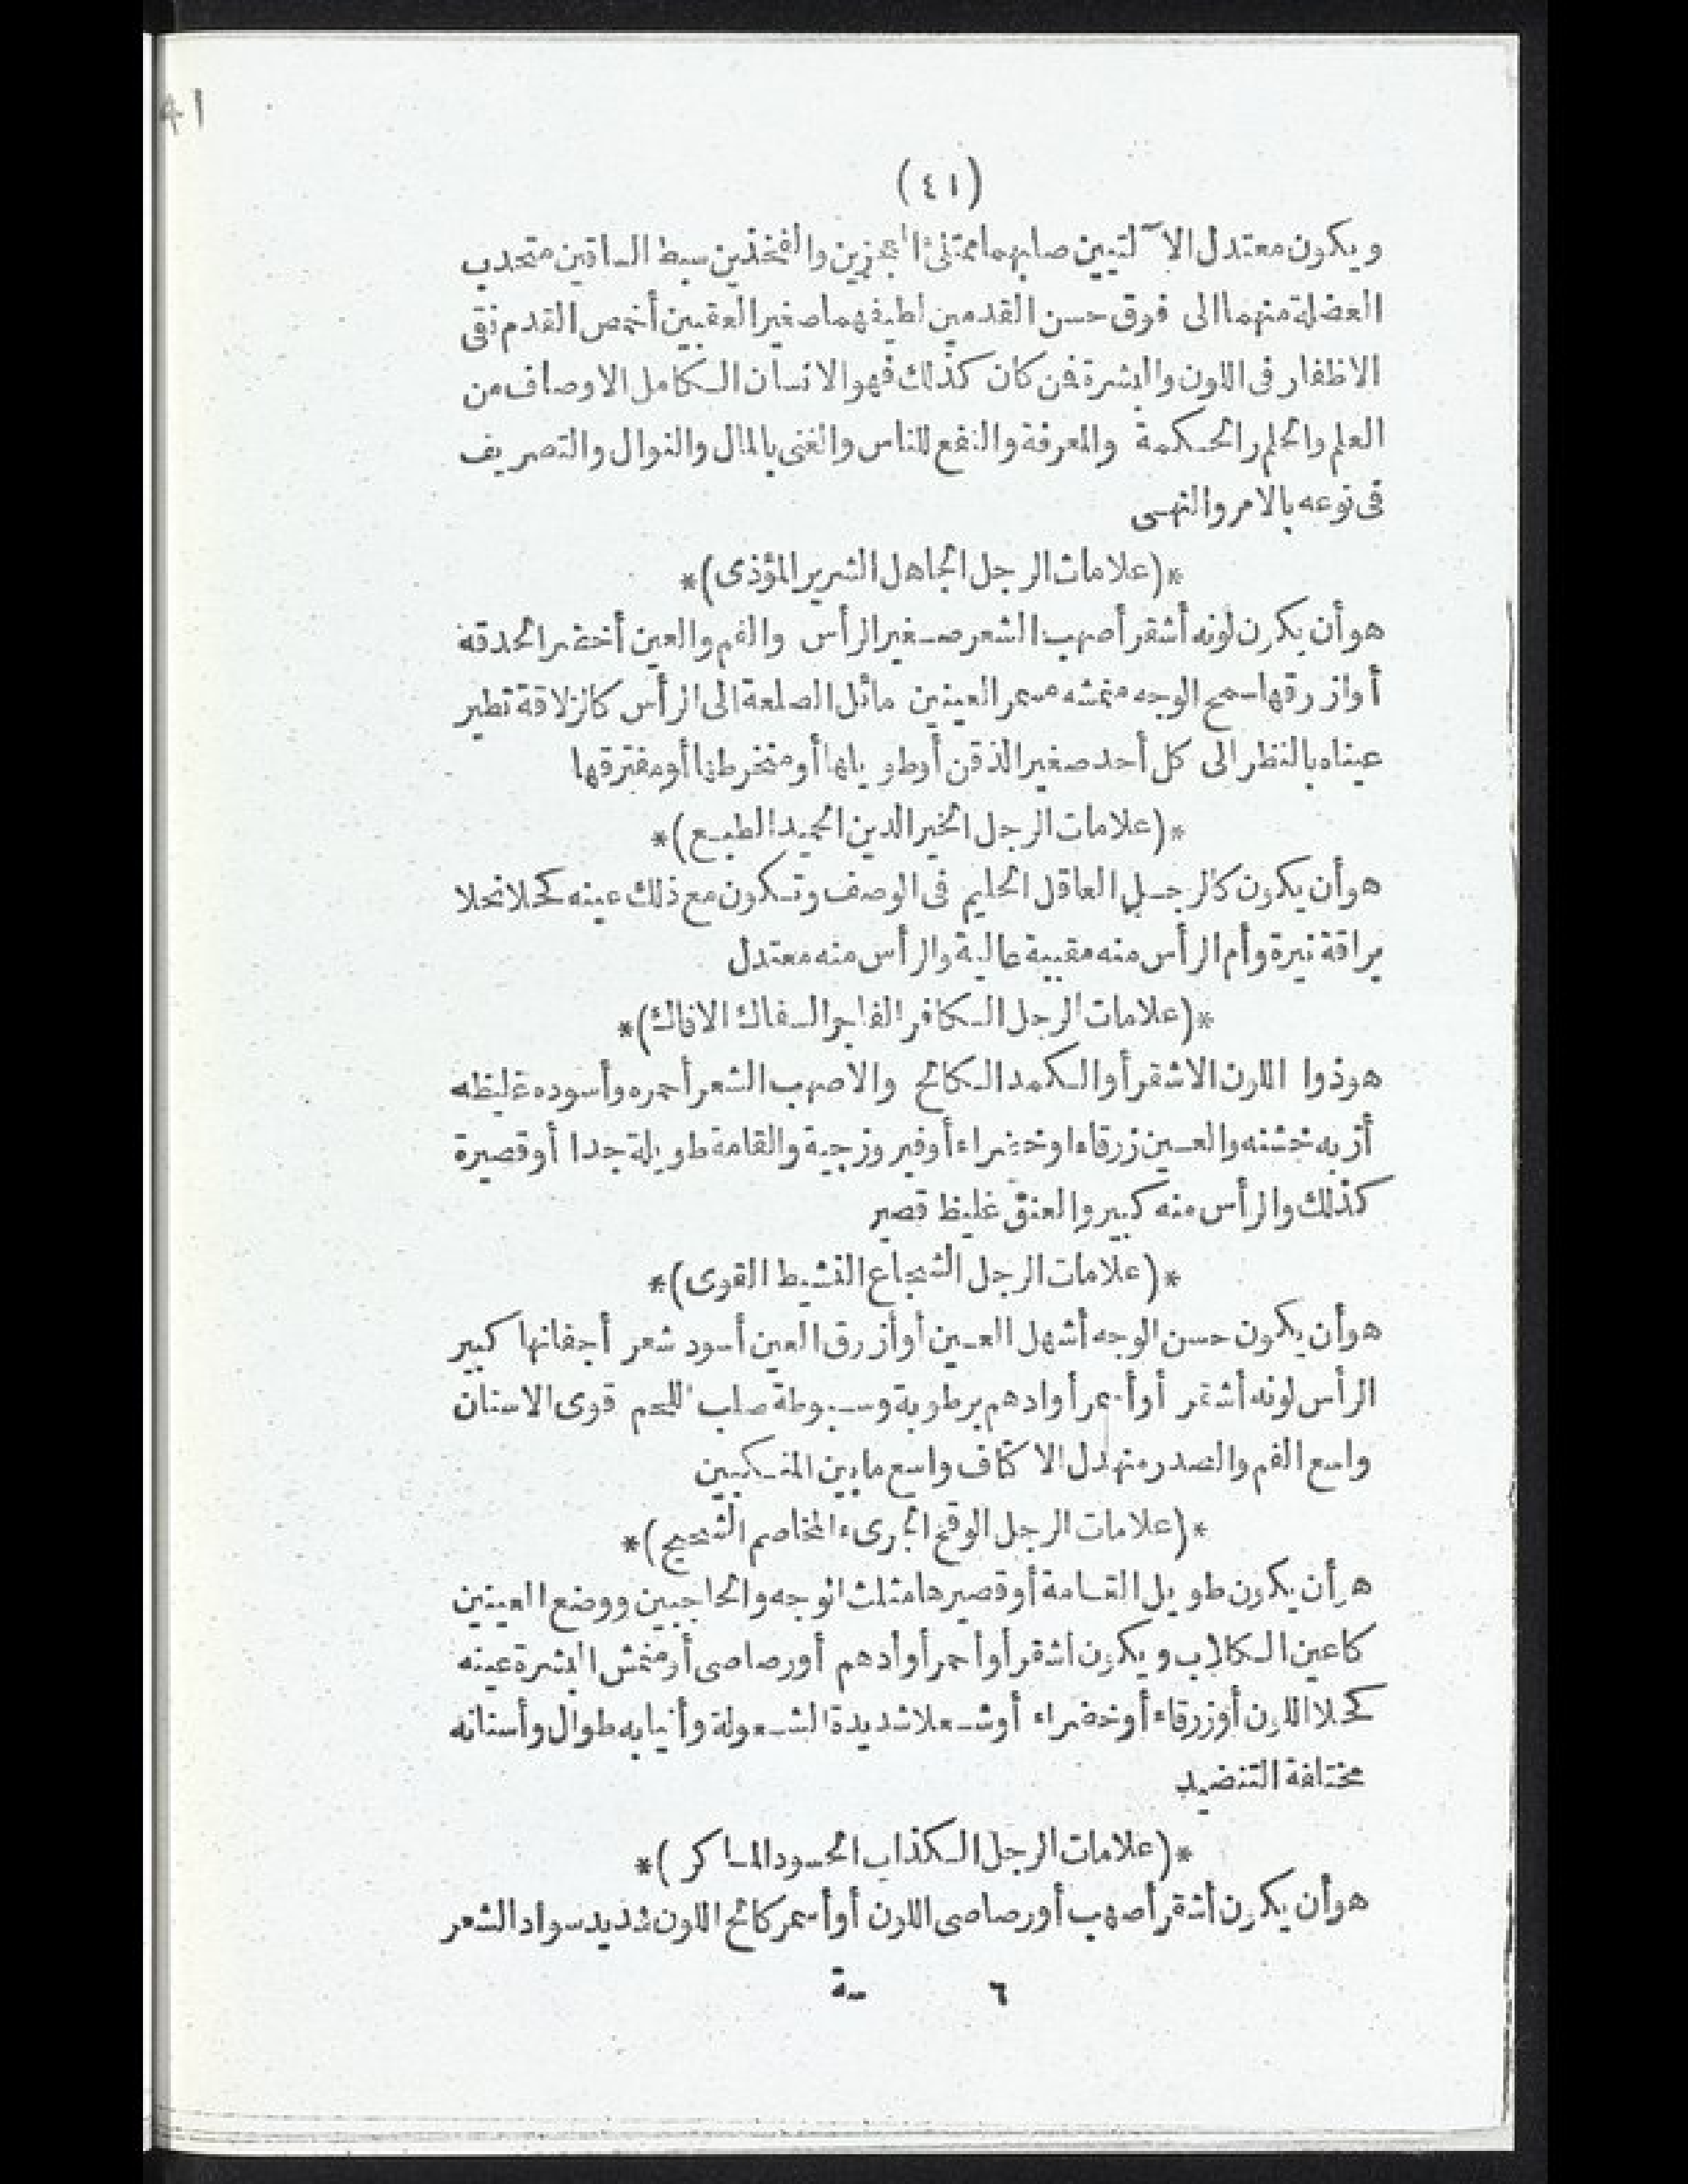 41
(٤١)
ويكون معتدل الآليتين صلبهما ممتلئ العجزين والفخذين سبط الساقين متحدب
العضلة منهما الى فوق حسن القدمين لطيفهما صغير العقبين أخمص القدم نقى
الاظفار فى اللون والبشرة فمن كان كذلك فهو الانسان الكامل الاوصاف من
العلم والحلم والحكمة والمعرفة والنفع للناس والغنى بالمال والنوال والتصريف
فى نوعه بالامر والنهى
*(علامات الرجل الجاهل الشرير المؤذى)*
هو أن يكون لونه أشقر أصهب الشعر صغير الرأس والفم والعين أخضر الحدقة
أو ازرقها سمح الوجه منمشه مسمر العينين مائل الصلعة الى الرأس كالزلاقة تطير
عيناه بالنظر الى كل أحد صغير الذقن أو طويلها أو منخرطها أو مفترقها
*(علامات الرجل الخير الدين الجيد الطبع)*
هو أن يكون كالرجل العاقل الحليم فى الوصف وتكون مع ذلك عينه كحلا نجلا
براقة نيرة وأم الرأس منه مقببة عالية والرأس منه معتدل
*(علامات الرجل الكافر الفاجر السفاك الافاك)*
هو ذوا اللون الاشقر أو الكمد الكالح والاصهب الشعر أحمره وأسوده غليظه
أزبه خشنه والعين زرقاء او خضراء أو فيروزجية والقامة طويلة جدا أو قصيرة
كذلك والرأس منه كبير والعنق غليظ قصير
*(علامات الرجل الشجاع النشيط القوى)*
هو أن يكون حسن الوجه أشهل العين أو أزرق العين أسود شعر أجفانها كبير
الرأس لونه أشقر أو أسمر أو ادهم برطوبة وسبوطة صلب اللحم قوى الاسنان
واسع الفم والصدر منهدل الاكتاف واسع ما بين المنكبين
*(علامات الرجل الوقح الجرىء المخاصم الشحيح)*
هو أن يكون طويل القامة أو قصيرها مثلث الوجه والحاجبين ووضع العينين
كاعين الكلاب ويكون أشقر أو أحمر أو أدهم أو رصاصى أو منمش البشرة عينه
كحلا اللون أو زرقاء أو خضراء أو شعلا شديدة الشعولة وأنيابه طوال وأسنانه
مختلفة التنضيد
*(علامات الرجل الكذاب الحسود الماكر)*
هو أن يكون أشقر أصهب أو رصاصى اللون أو أسمر كالح اللون شديد سواد الشعر
٦ سة